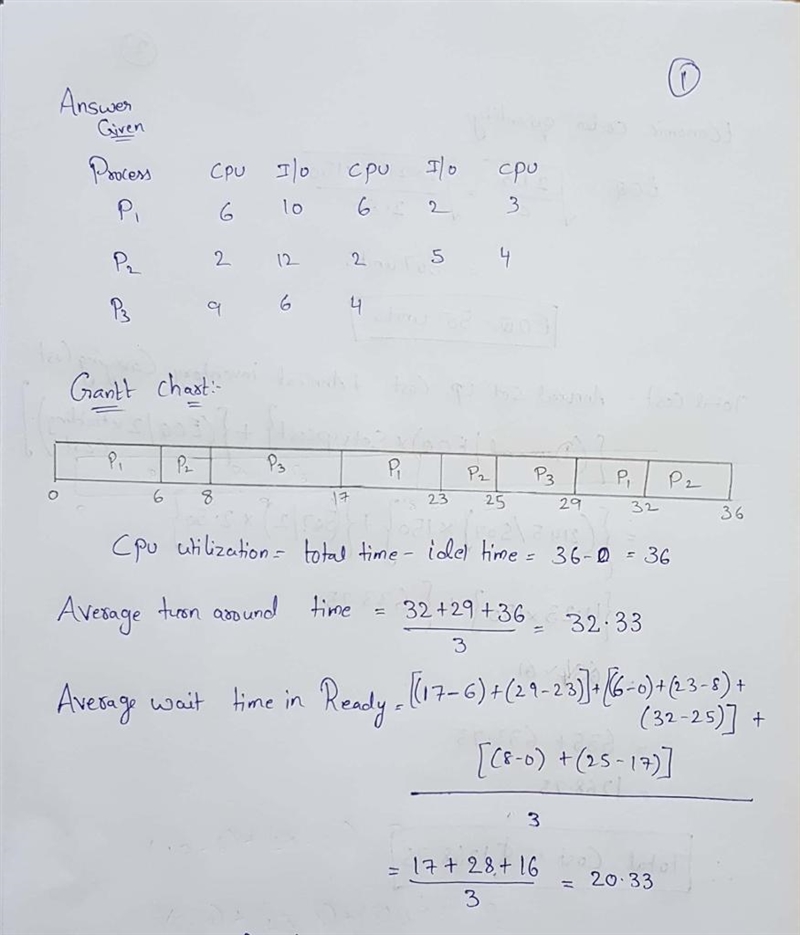 1
Answer
Given
Process CPU I/O CPU I/O CPU
P1 6 10 6 2 3
P2 2 12 2 5 4
P3 9 6 4
Gantt chart:-
P1 P2 P3 P1 P2 P3 P1 P2
0 6 8 17 23 25 29 32 36
CPU utilization = total time - idel time = 36-0 = 36
Average turn around time = 32+29+36 / 3 = 32.33
Average wait time in Ready = [(17-6)+(29-23)]+[(6-0)+(23-8)+
(32-25)] +
[(8-0) + (25-17)]
3
= 17+28+16 / 3 = 20.33